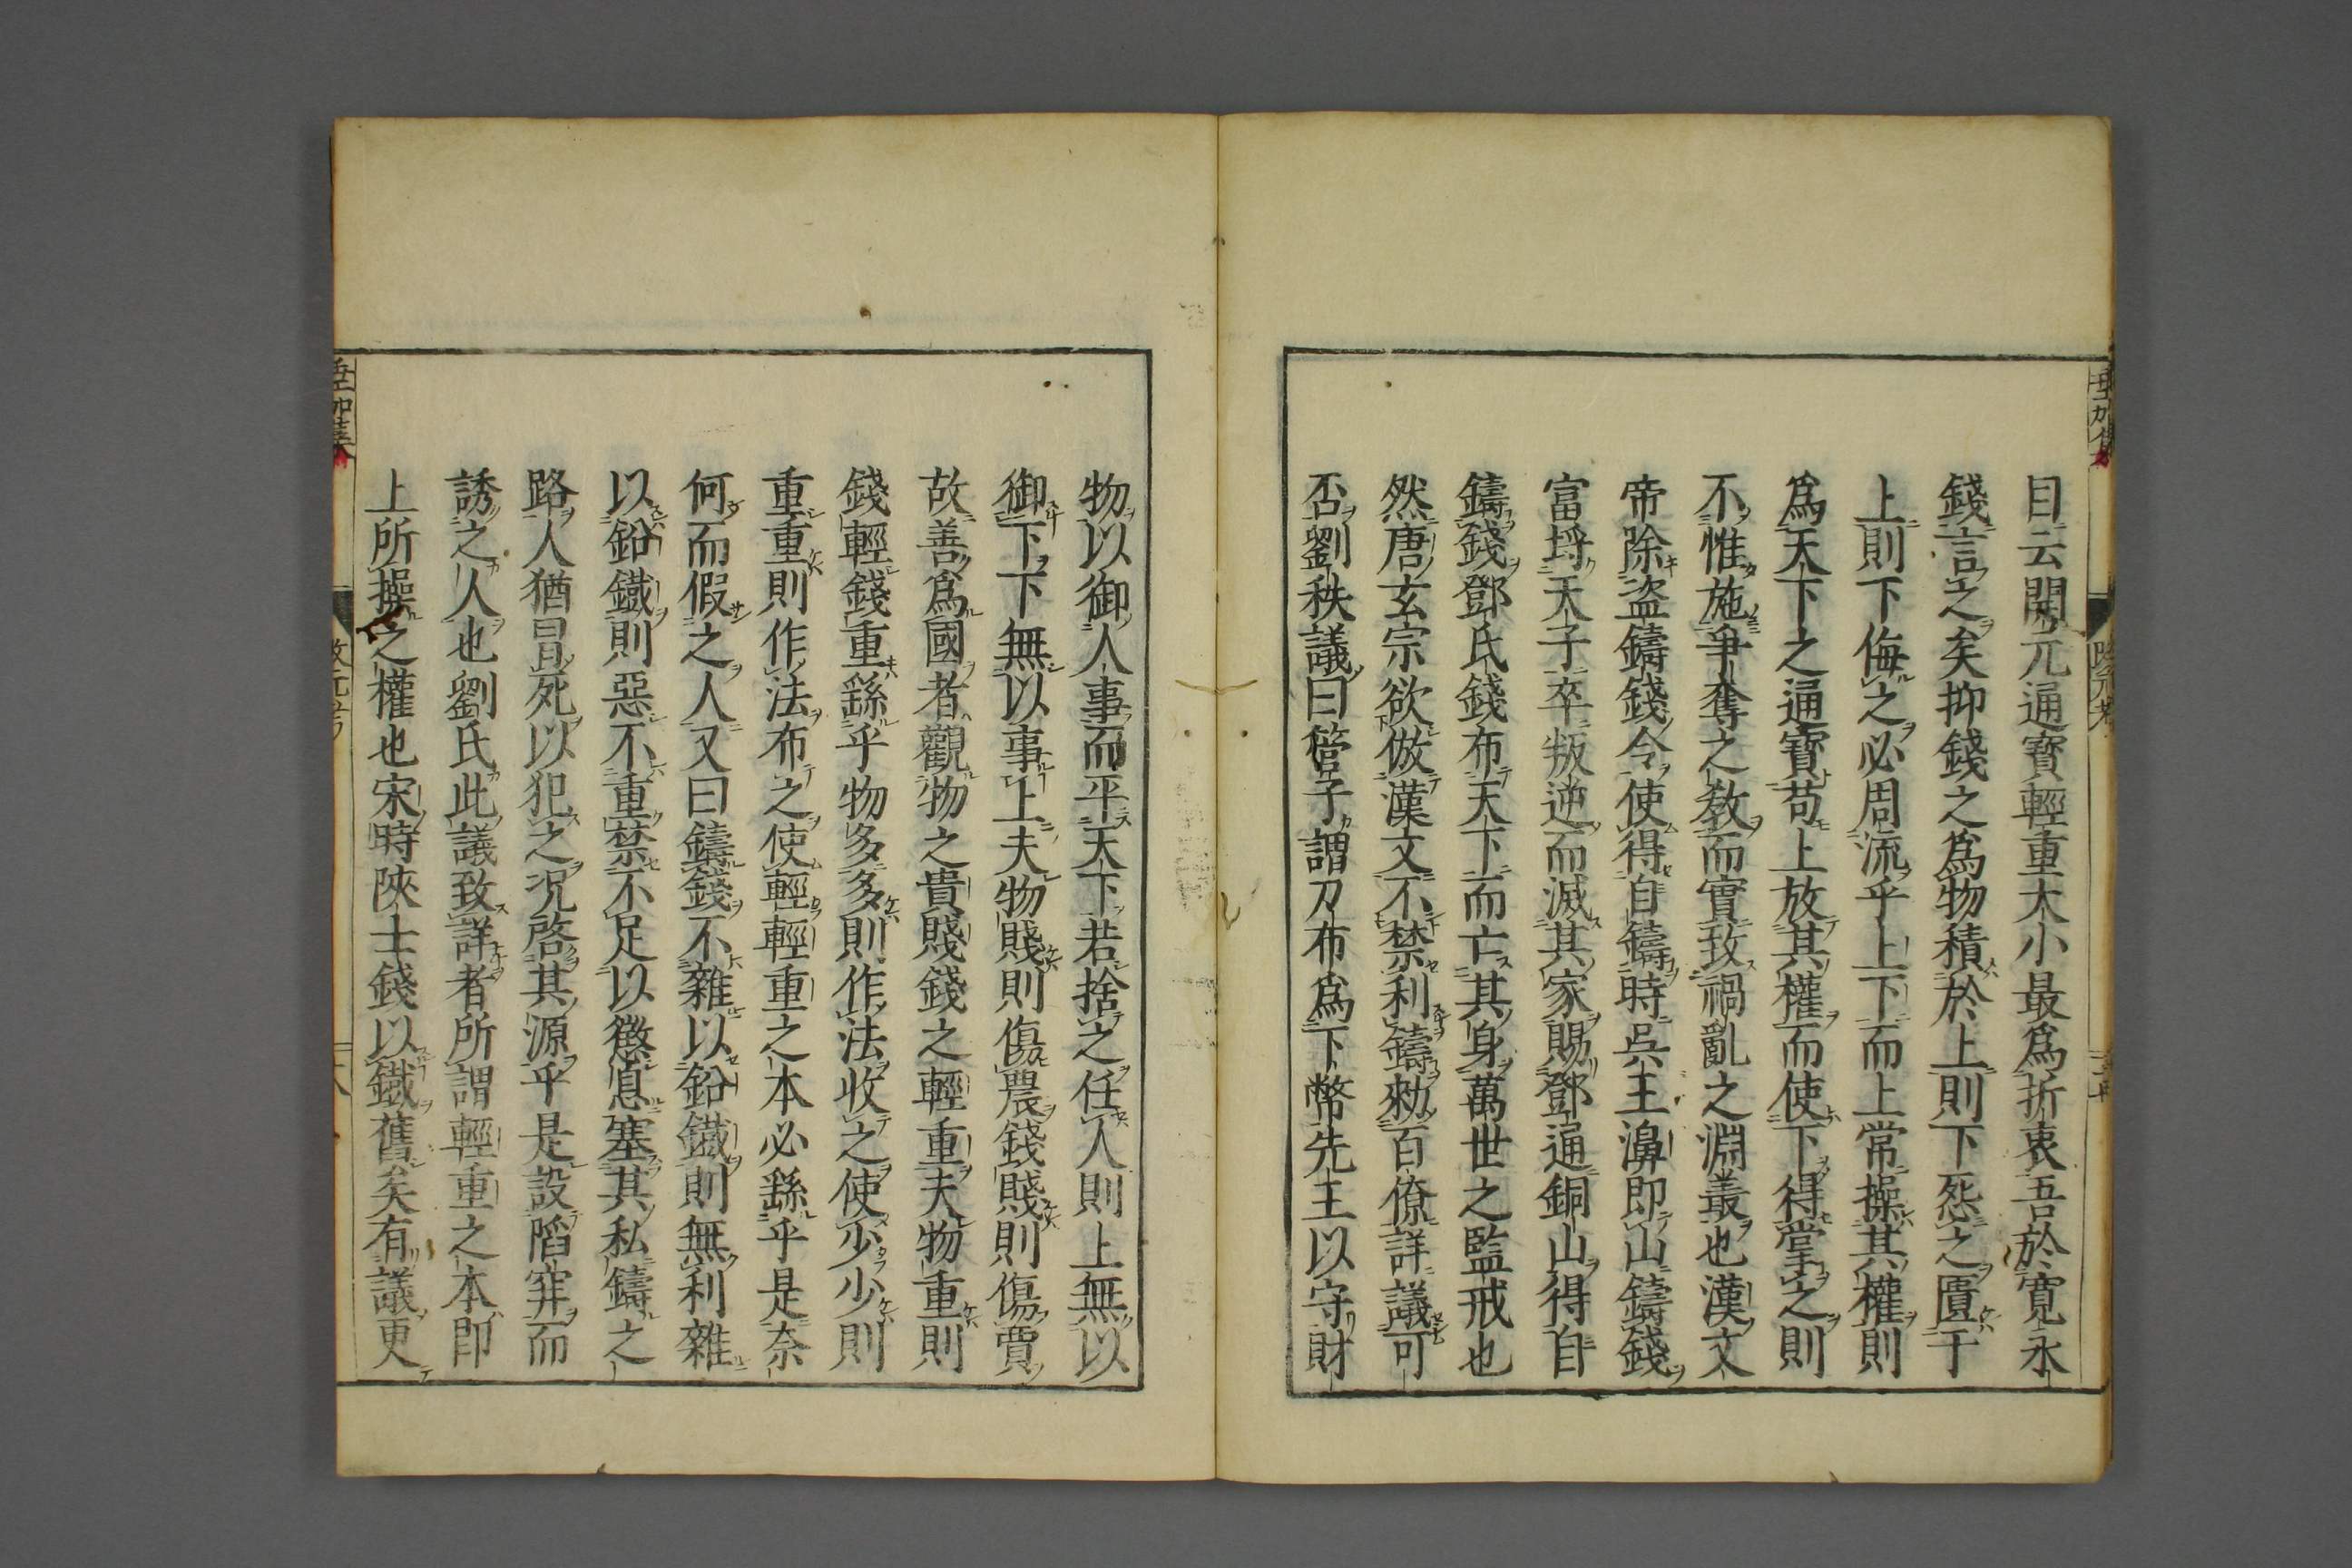 目云開元通寳輕重大小最爲折衷吾於寛永
錢言之矣抑錢之爲物積於上則下怨之匱于
上則下侮之必周流乎上下而上常操其權則
爲天下之通寳苟上放其權而使下得掌之則
不惟施爭奪之教而實致禍亂之淵叢也漢文
帝除盗鑄錢令使得自鑄時呉王濞即山鑄錢
富埒天子卒叛逆而滅其家賜鄧通銅山得自
鑄錢鄧氏錢布天下而亡其身萬世之監戒也
然唐玄宗欲倣漢文不禁利鑄勅百僚詳議可
否劉秩議曰管子謂刀布爲下幣先王以守財
物以御人事而平天下若捨之任人則上無以
御下下無以事上夫物賤則傷農錢賤則傷賈
故善爲國者觀物之貴賤錢之輕重夫物重則
錢輕錢重繇乎物多多則作法收之使少少則
重重則作法布之使輕輕重之本必繇乎是奈
何而假之人又曰鑄錢不雜以鉛鐵則無利雜
以鉛鐵則惡不重禁不足以懲息塞其私鑄之
路人猶冒死以犯之况啓其源乎是設䧟穽而
誘之人也劉氏此議致詳者所謂輕重之本即
上所操之權也宋時陝士錢以鐵舊矣有議更
垂加集
改元考